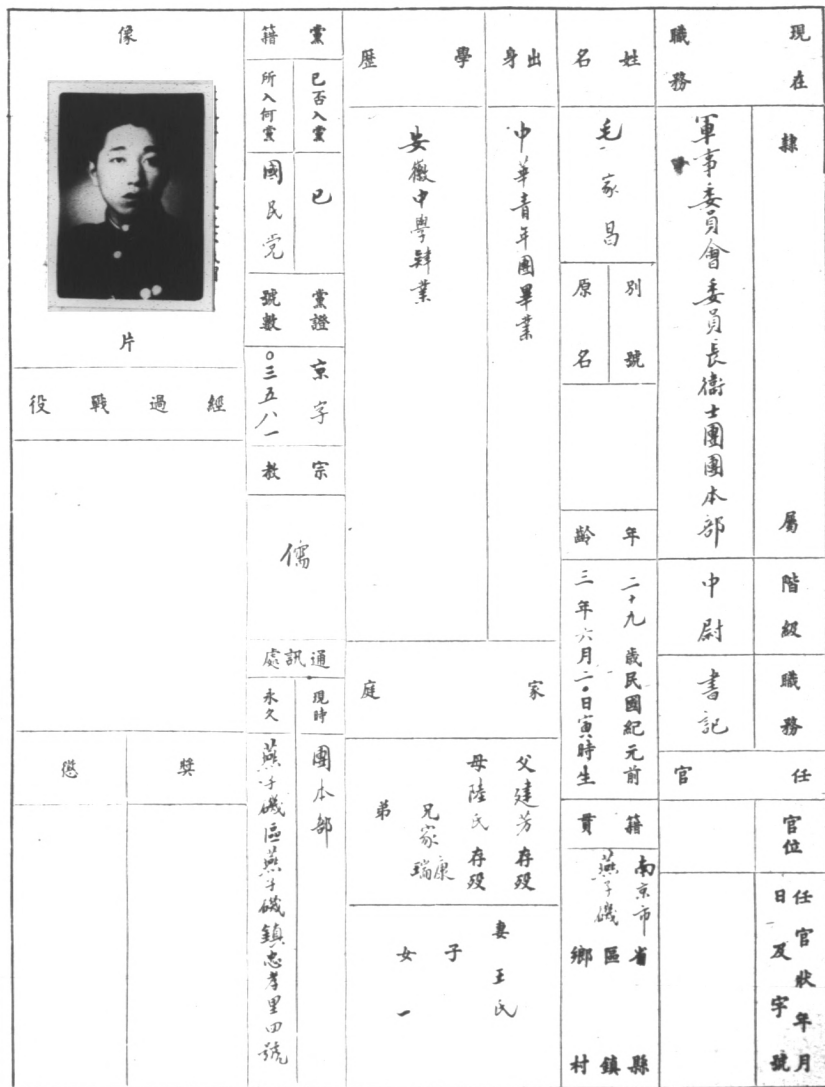 現在職務
隸屬
軍事委員會委員長衛士團團本部
階級
中尉
職務
書記
任官
官位
任官狀年月日及字號
姓名
毛家昌
別號
原名
年齡
二十九歲民國紀元前
三年六月二〇日寅時生
籍貫
南京市省縣
燕子磯區鎮
鄉村
出身
中華青年團畢業
學歷
安徽中學肄業
家庭
父建芳存歿
母陸氏存歿
兄家康
瑞
弟
妻王氏
子
女一
黨籍
已否入黨
已
所入何黨
國民党
黨證號數
京字
〇三五八一
宗教
儒
通訊處
現時
團本部
永久
燕子磯區燕子磯鎮忠孝里四號
像片
經過戰役
獎
懲